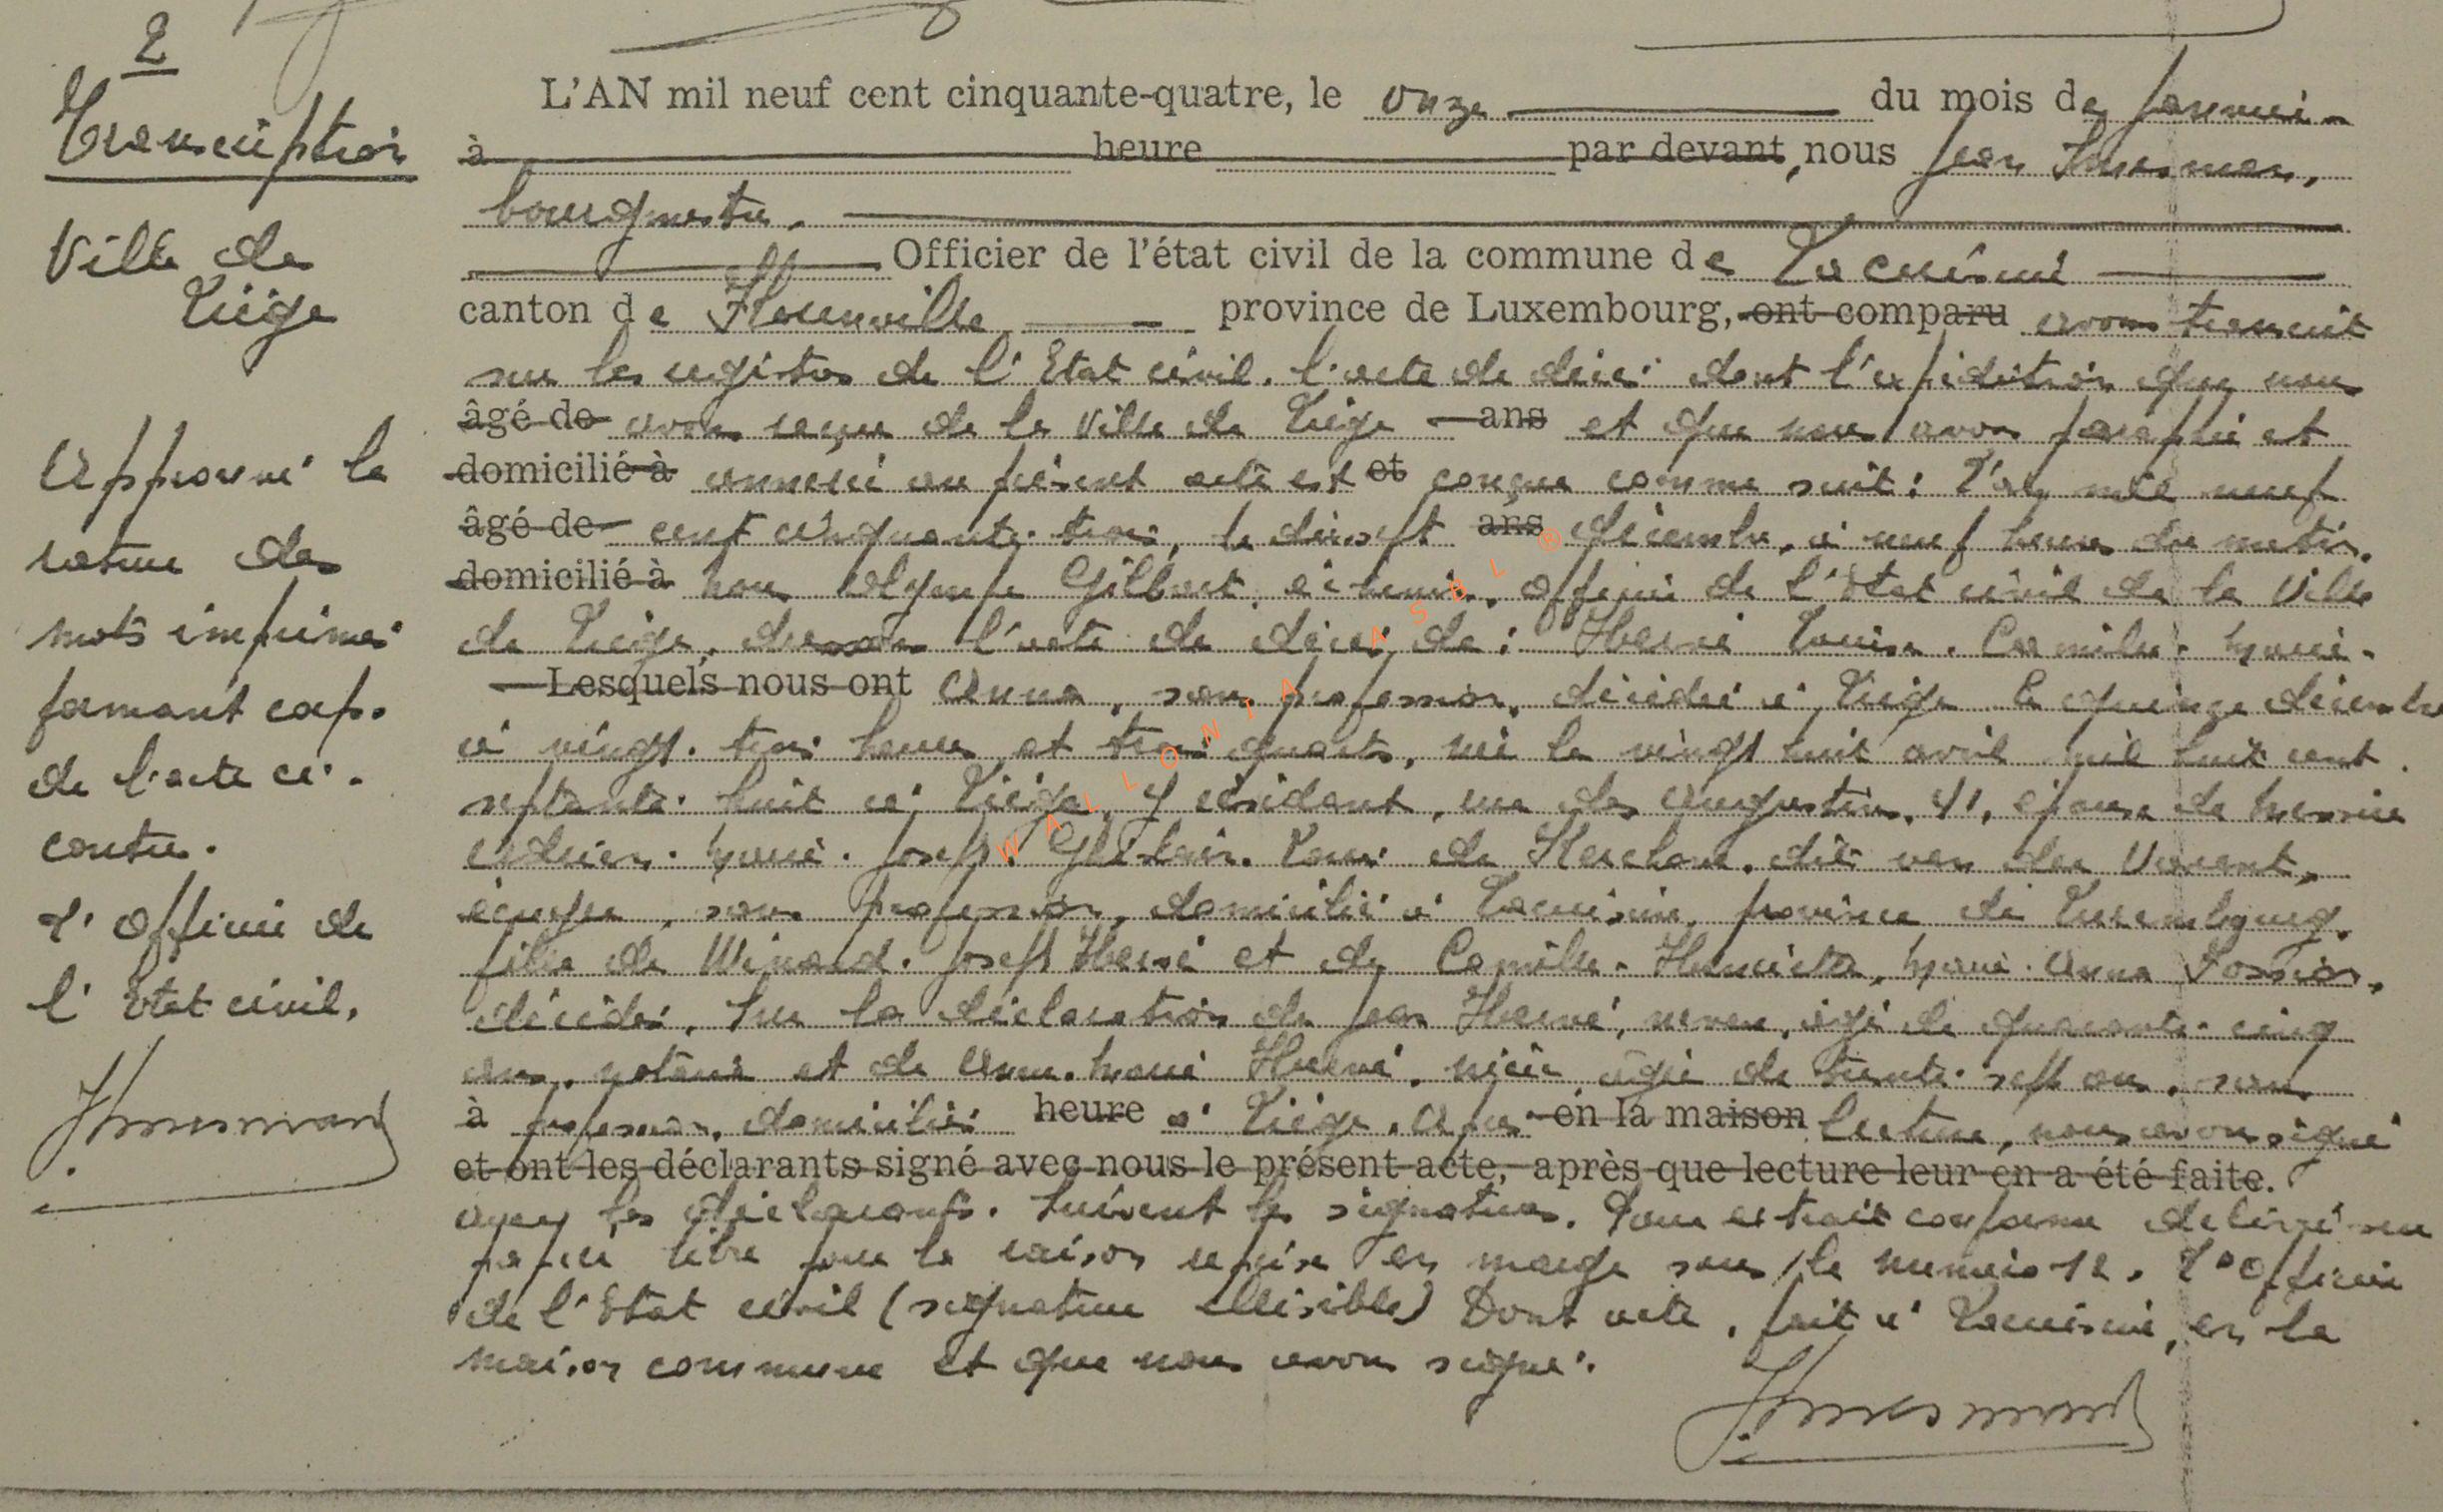 2
Transcription
Ville de
Liége
Approuvé la
rature des
mots imprimés
formant corps
de l'acte ci-
contre.
L'Officier de
l'Etat civil.
L'AN mil neuf cent cinquante-quatre, le onze du mois de janvier
à heure par devant, nous Jean
bourgmestre.
Officier de l'état civil de la commune de Lacuisine
canton de Florenville province de Luxembourg, ont comparu avons transcrit
sur les registres de l'Etat civil, l'acte de décès dont l'expédition que nous
âgé de avons reçue de la Ville de Liége ans et que nous avons paraphé et
domicilié à annexé au présent acte est et conçue comme suit : L'an mil neuf
âgé de cent cinquante-trois, le dix-sept ans décembre, à neuf heures du matin.
domicilié à nous Olympe Gilbart, échevin, officier de l'état civil de la Ville
de Liége, dressons l'acte de décès de : Hervé Louise. Camille. Marie-
Lesquels nous ont Anna, sans profession, décédée à Liége le quinze décembre
à vingt-trois heures et trois quarts, née le vingt huit avril mil huit cent
septante-huit à Liége, y résidant, rue des Augustins, 41, épouse de Messire
Adrien. Marie. Joseph. Ghislain. de Kerchove. dit van der Varent,
écuyer, sans profession, domiciliée à Lacuisine, province de Luxembourg.
fille de Winand. Joseph Hervé et de Camille. Henriette, Marie. Anna
décédés. Sur la déclaration de Jean Hervé, neveu, âgé de quarante-cinq
ans, notaire et de Anne. Marie Hervé, nièce, âgée de trente-sept ans, sans
à profession, domiciliés heure à Liége. Après en la maison lecture, nous avons signé
et ont les déclarants signé avec nous le présent acte, après que lecture leur en a été faite.
avec les déclarants. Suivent les signatures. Pour extrait conforme délivré sur
papier libre pour la raison reprise en marge sous le numéro 12. L'Officier
de l'Etat civil (signature illisible) Dont acte, fait à Lacuisine, en la
maison commune et que nous avons signé.
WALLONIA ASBL ®